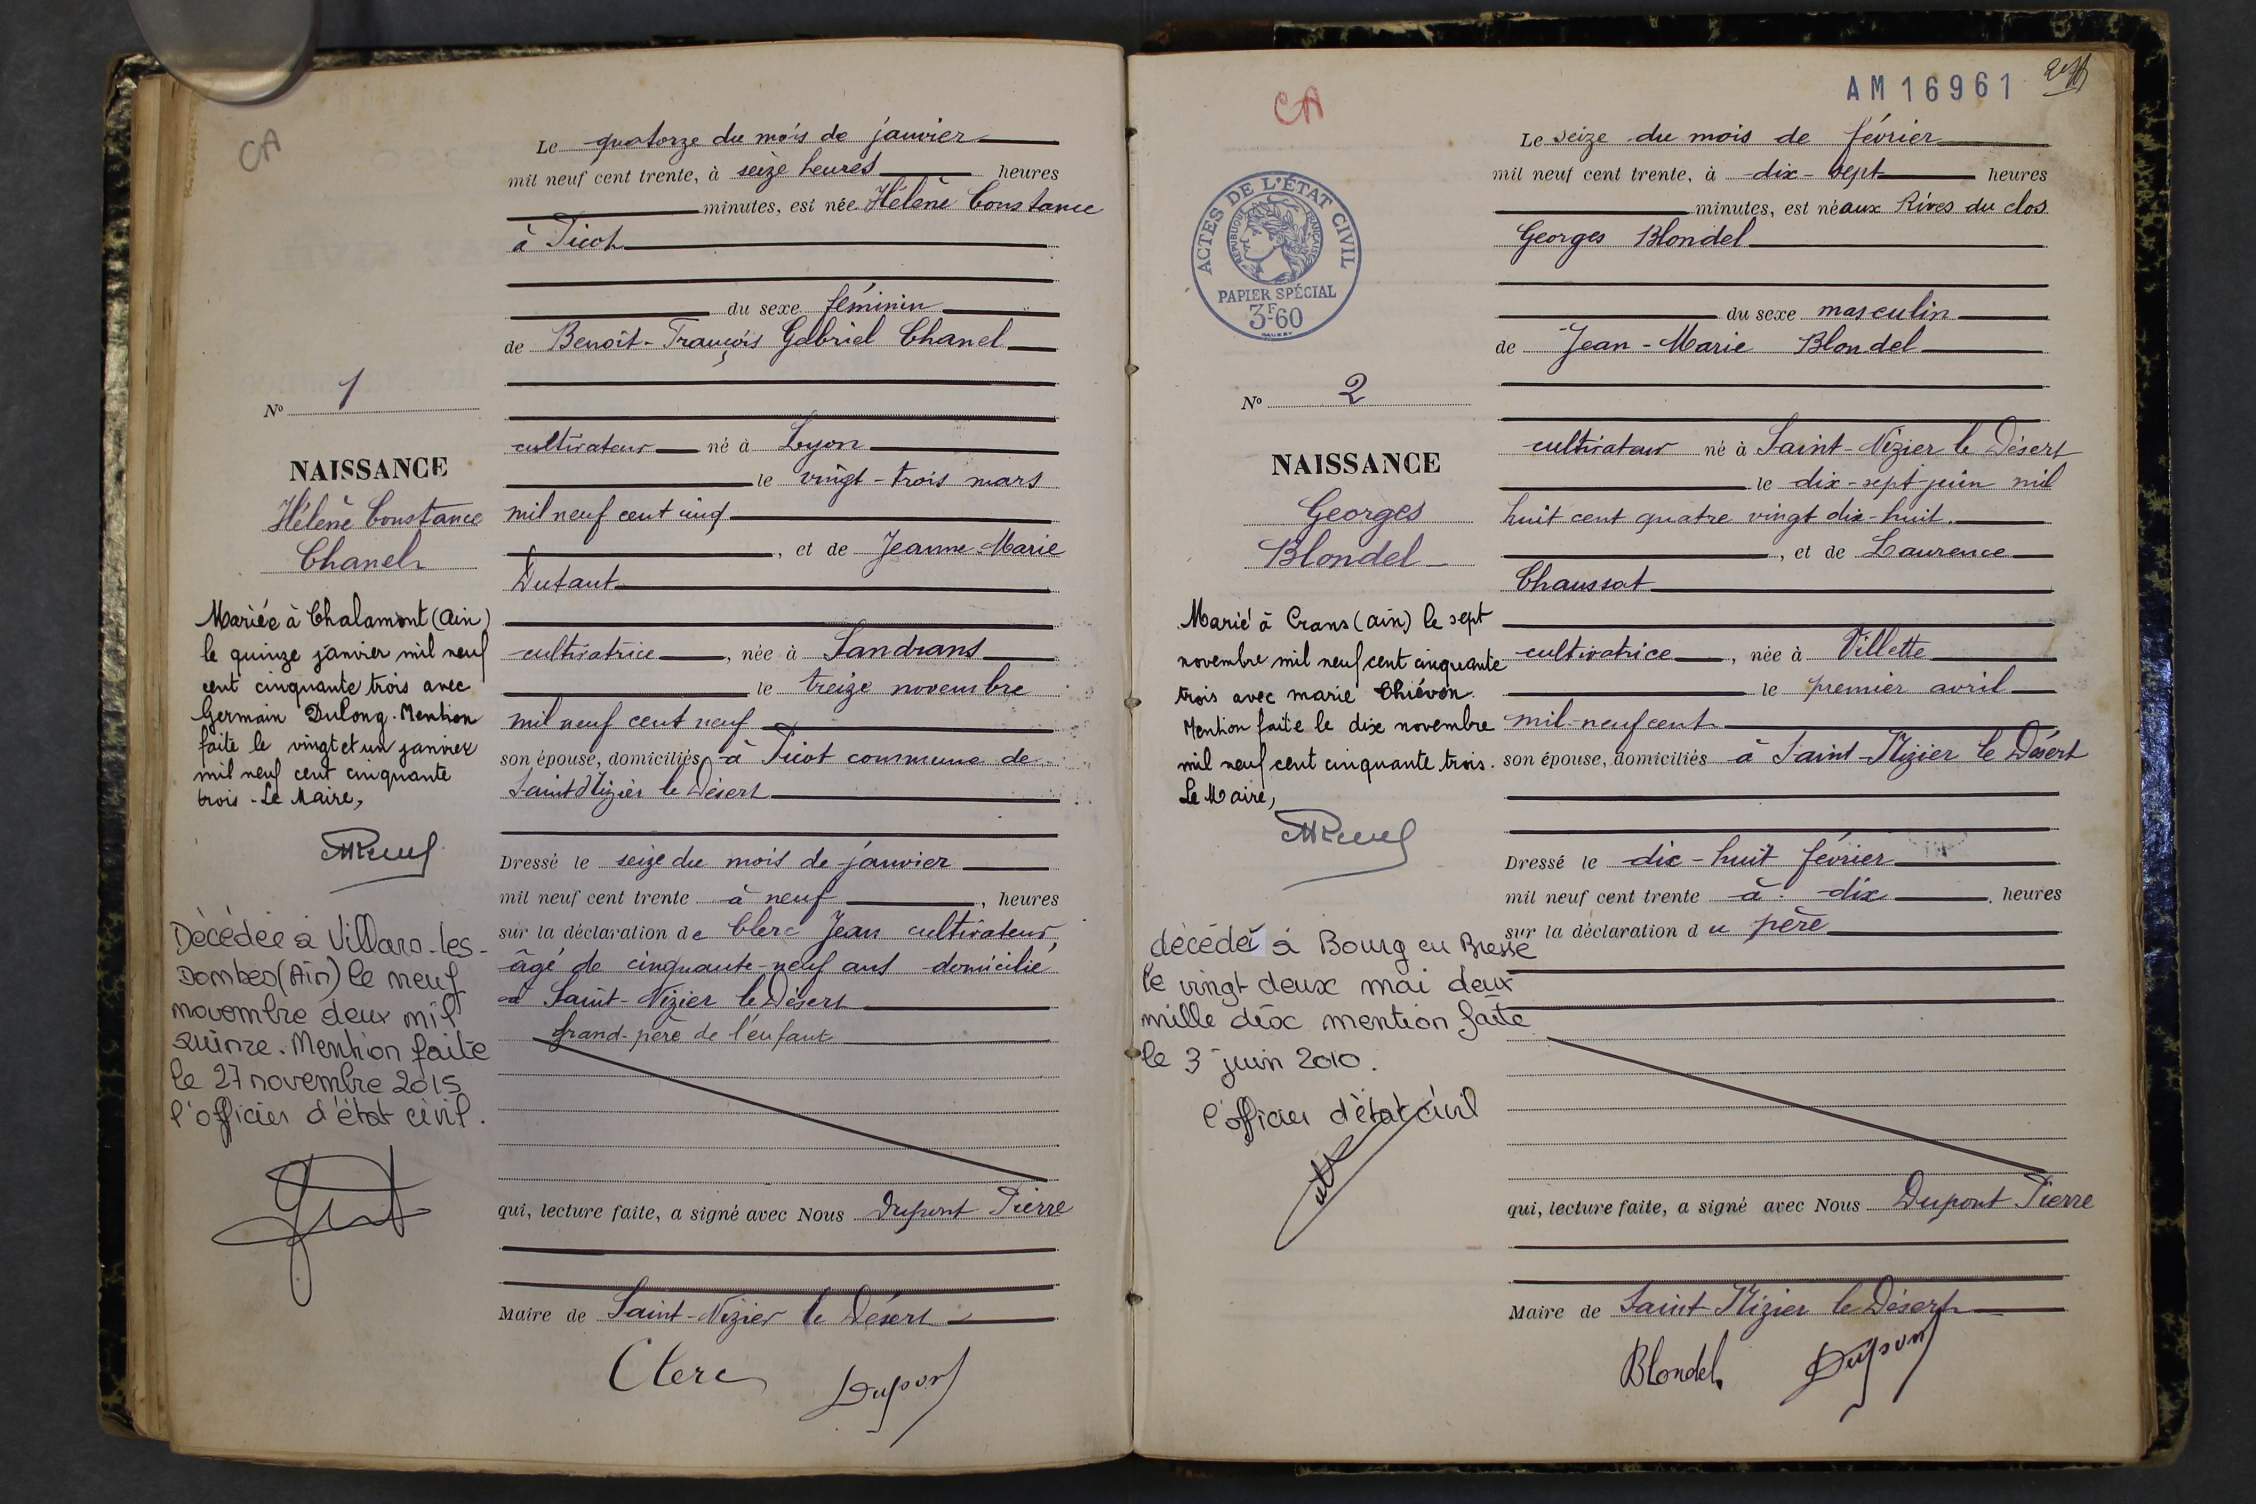 CA
Le quatorze du mois de janvier
mil neuf cent trente, à seize heures heures
minutes, est née Hélène Constance
à Picot
du sexe féminin
de Benoît-François Gabriel Chanel
Nº 1
cultivateur né à Lyon
NAISSANCE
le vingt-trois mars
Hélène Constance
mil neuf cent cinq
Chanel
, et de Jeanne-Marie
Dutaut
Mariée à Chalamont (Ain)
le quinze janvier mil neuf
cent cinquante trois avec
Germain Dulong. Mention
faite le vingt et un janvier
mil neuf cent cinquante
trois - Le Maire,
cultivatrice, née à Sandrans
le treize novembre
mil neuf cent neuf
son épouse, domiciliés à Picot commune de
Saint Nizier le Désert
Dressé le seize du mois de janvier
mil neuf cent trente à neuf, heures
sur la déclaration de Clerc Jean cultivateur,
âgé de cinquante-neuf ans domicilié
à Saint-Nizier le Désert
grand-père de l'enfant
Décédée à Villars-les-
Dombes (Ain) le neuf
novembre deux mil
quinze. Mention faite
le 27 novembre 2015
l'officier d'état civil.
qui, lecture faite, a signé avec Nous Dupont Pierre
Maire de Saint-Nizier le Désert
Clerc Dupont
AM16961
CA
Le seize du mois de février
mil neuf cent trente, à dix-sept heures
minutes, est né aux Rives du clos
Georges Blondel
ACTES DE L'ÉTAT CIVIL
RÉPUBLIQUE FRANÇAISE
PAPIER SPÉCIAL
3F60
du sexe masculin
de Jean-Marie Blondel
Nº 2
cultivateur né à Saint-Nizier le Désert
NAISSANCE
le dix-sept juin mil
Georges
huit cent quatre vingt dix-huit.
Blondel
, et de Laurence
Chaussat
Marié à Crans (ain) le sept
novembre mil neuf cent cinquante
trois avec marie Chiévon.
Mention faite le dix novembre
mil neuf cent cinquante trois.
Le Maire,
cultivatrice, née à Villette
le premier avril
mil-neuf cent
son épouse, domiciliés à Saint-Nizier le Désert
Dressé le dix-huit février
mil neuf cent trente à dix, heures
sur la déclaration du père
décédé à Bourg en Bresse
le vingt deux mai deux
mille dix mention faite
le 3 juin 2010.
l'officier d'état civil
qui, lecture faite, a signé avec Nous Dupont Pierre
Maire de Saint Nizier le Désert
Blondel Dupont